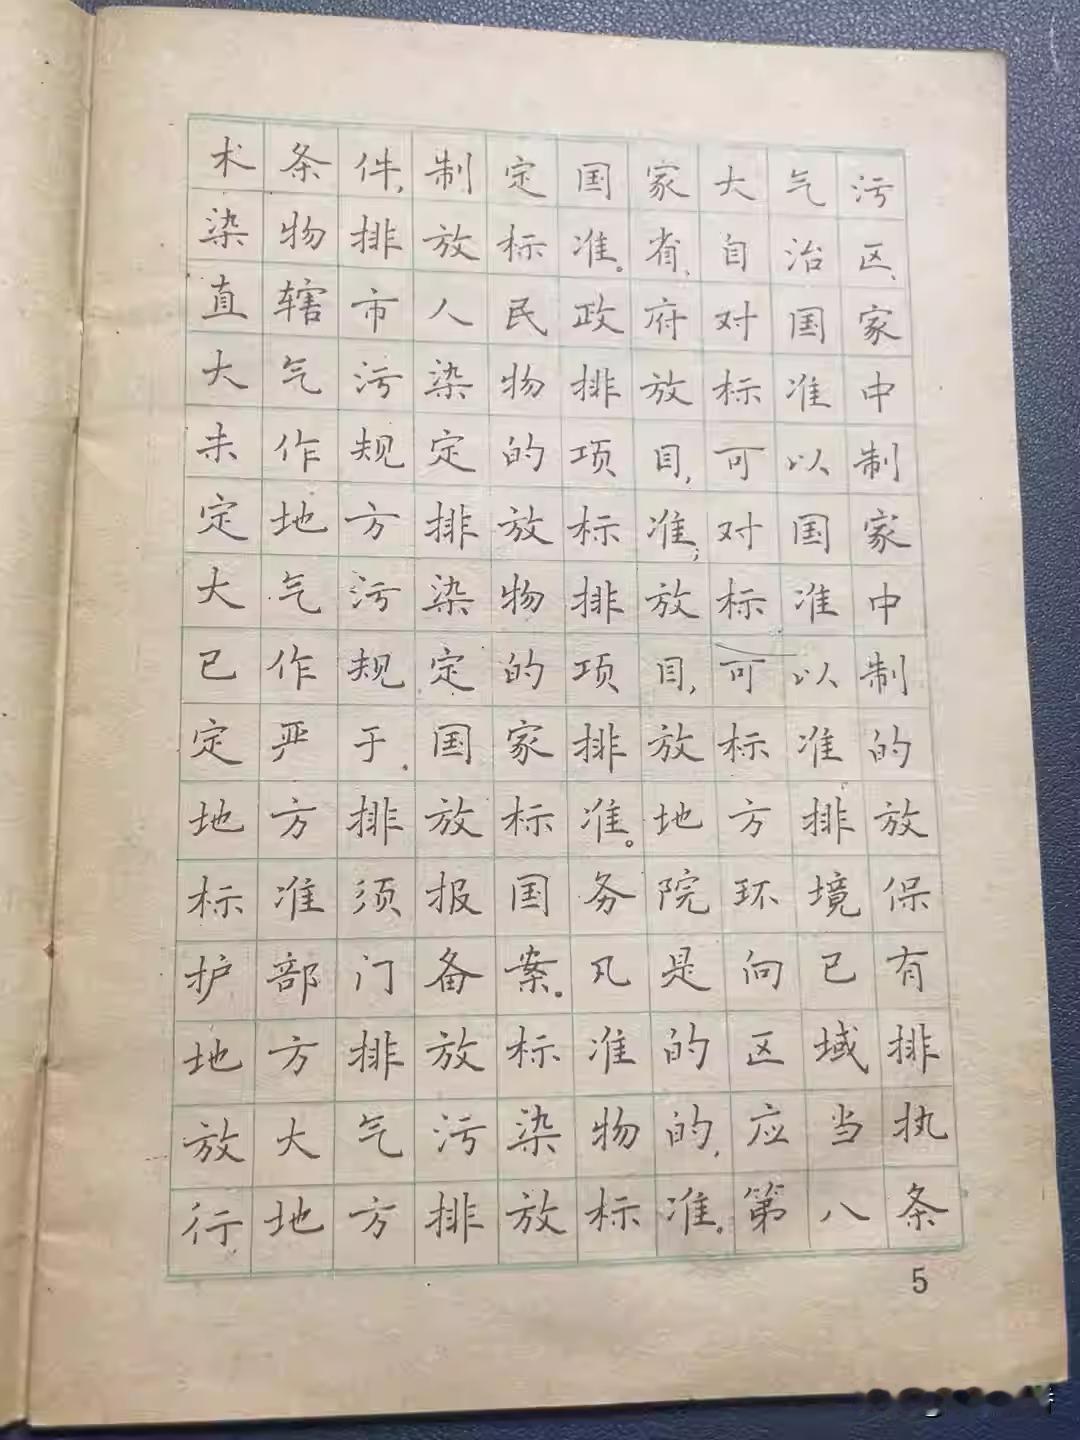 术条件,制定国家大气污
染物排放标准。省、自治区、
直辖市人民政府对国家
大气污染物排放标准中
未作规定的项目,可以制
定地方排放标准;对国家
大气污染物排放标准中
已作规定的项目,可以制
定严于国家排放标准的
地方排放标准。地方排放
标准须报国务院环境保
护部门备案。凡是向已有
地方排放标准的区域排
放大气污染物的,应当执
行地方排放标准。第八条
5